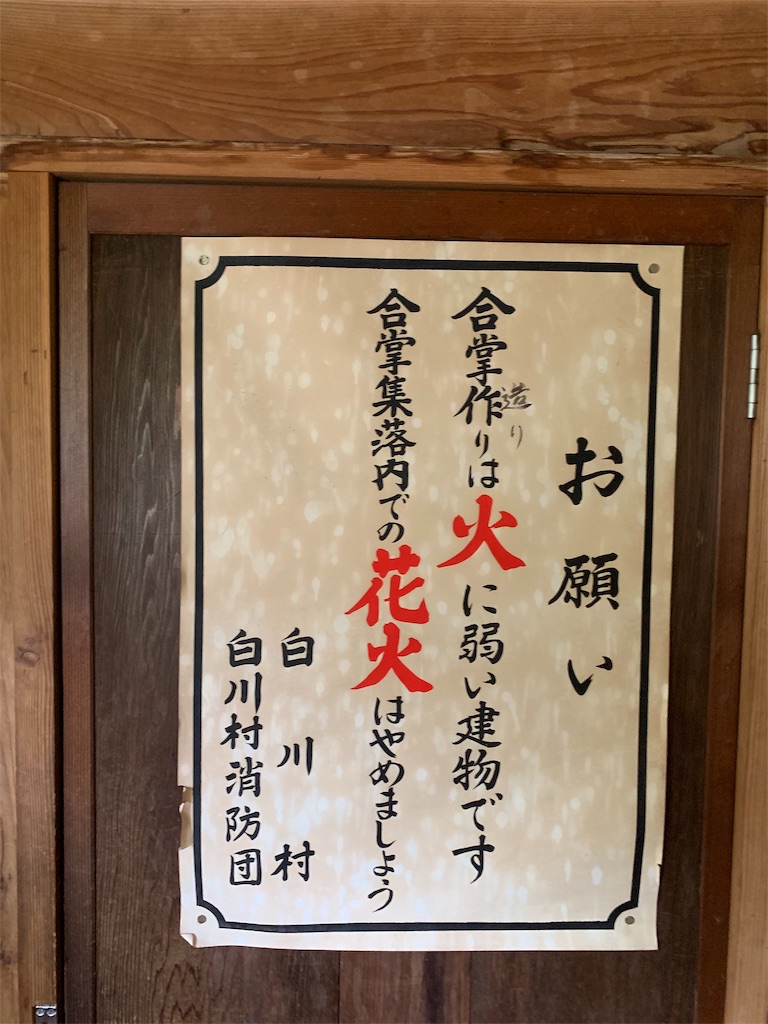 お願い
合掌作りは火に弱い建物です
造り
合掌集落内での花火はやめましょう
白川村
白川村消防団